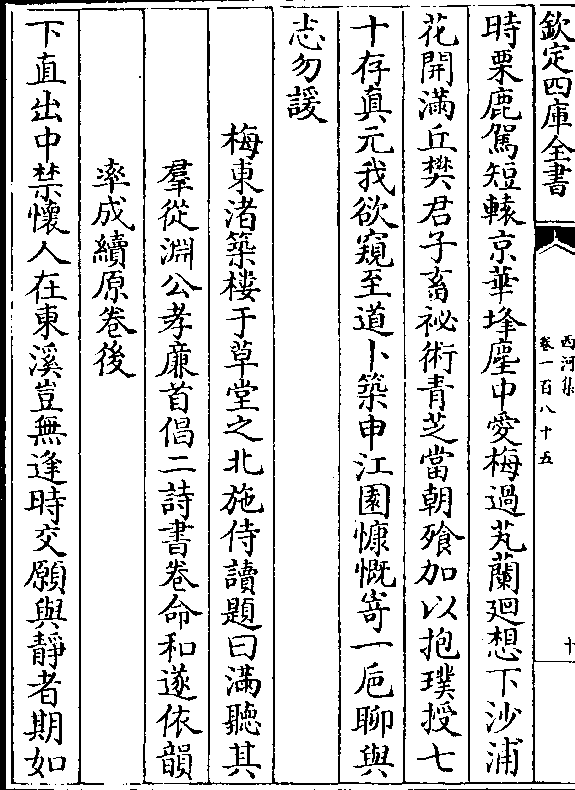 欽定四庫全書
西河集
卷一百八十五
十
時栗鹿駕短轅京華埄塵中愛梅過芄蘭廻想下沙浦
花開滿丘樊君子畜祕術青芝當朝飱加以抱璞授七
十存真元我欲窺至道卜築申江園慷慨寄一巵聊與
志勿諼
梅東渚築樓于草堂之北施侍讀題曰滿聽其
羣從淵公孝廉首倡二詩書卷命和遂依韻
率成續原卷後
下直出中禁懷人在東溪豈無逢時交願與靜者期如